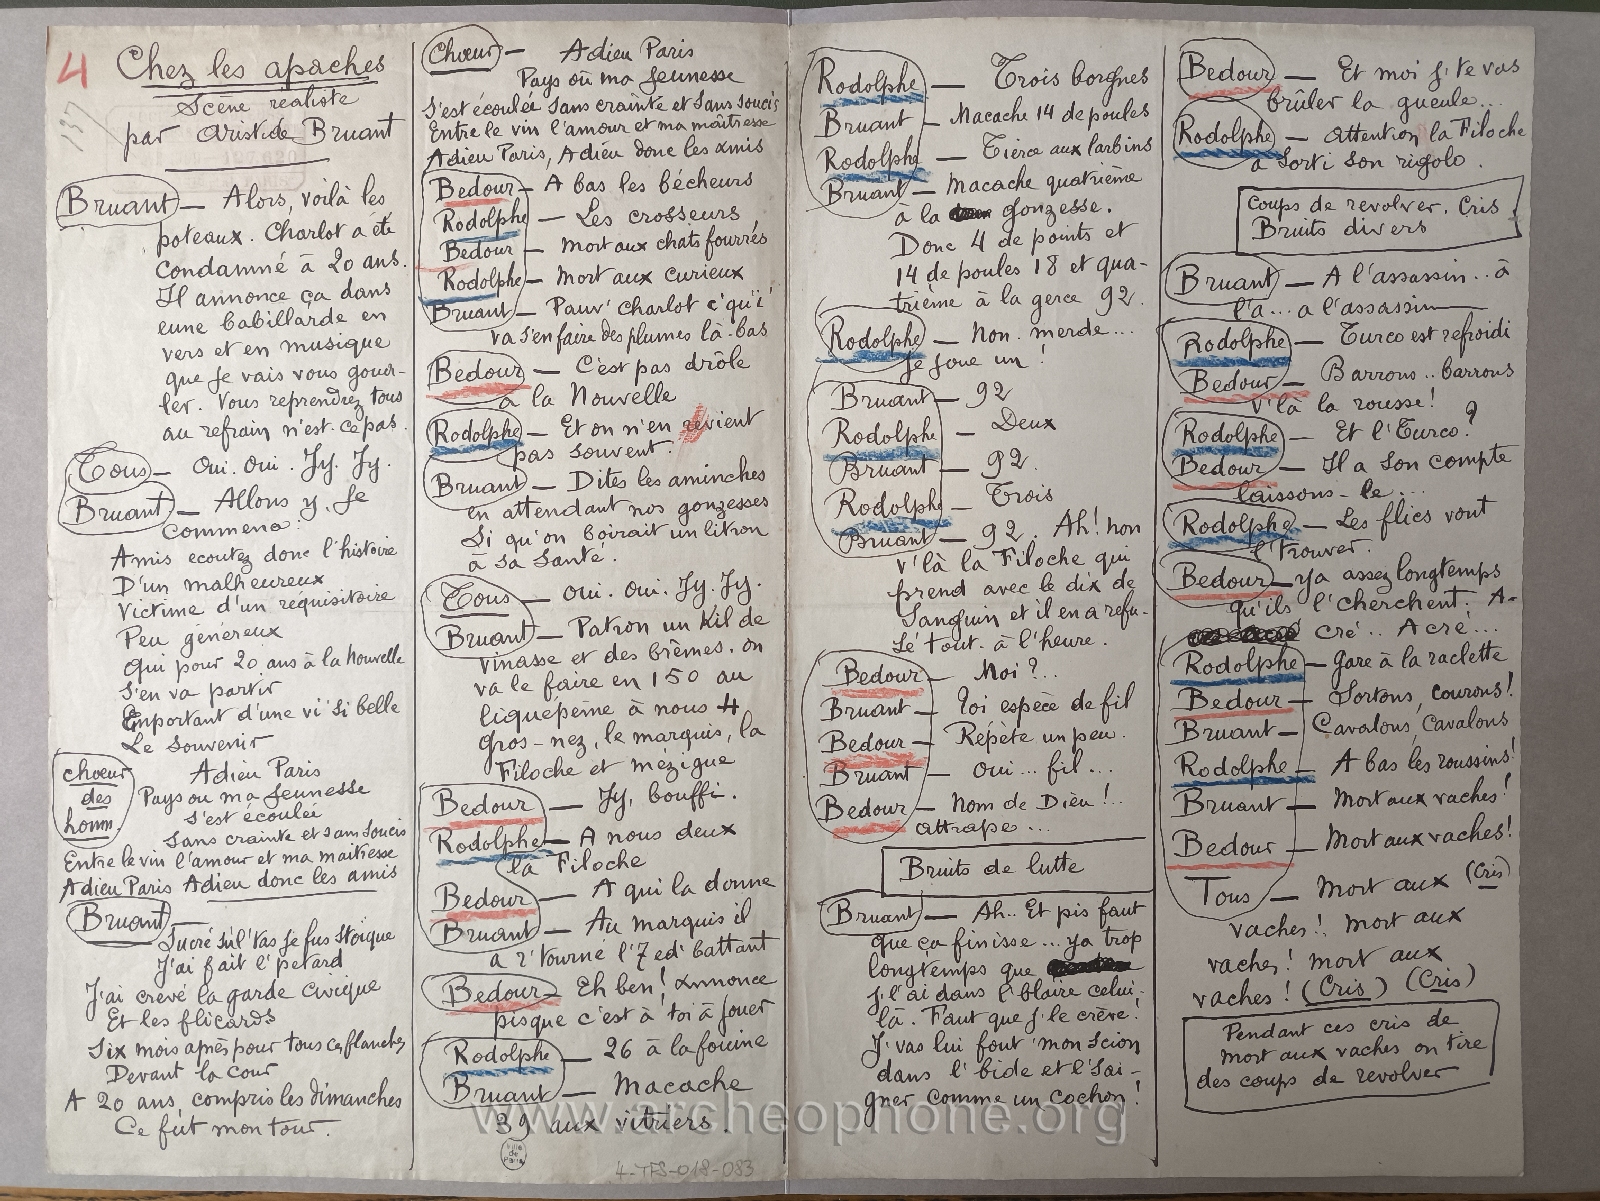 4
137
Chez les apaches
Scène réaliste
par Aristide Bruant
Bruant — Alors, voilà les
poteaux. Charlot a été
condamné à 20 ans.
Il annonce ça dans
eune babillarde en
vers et en musique
que je vais vous goual-
ler. Vous reprendrez tous
au refrain n'est-ce pas.
Tous — Oui. Oui. Jy. Jy.
Bruant — Allons y. Je
commence :
Amis ecoutez donc l'histoire
D'un malheureux
Victime d'un réquisitoire
Peu généreux
Qui pour 20 ans à la Nouvelle
S'en va partir
Emportant d'une vi' si belle
Le souvenir
Chœur
des
homm.
Adieu Paris
Pays ou ma Jeunesse
S'est écoulée
Sans crainte et sans soucis
Entre le vin l'amour et ma maitresse
Adieu Paris Adieu donc les amis
Bruant —
J'ai fait l' petard
J'ai crevé la garde civique
Et les flicards
Six mois après pour tous ces flanches
Devant la cour
A 20 ans, compris les dimanches
Ce fut mon tour.
Chœur — Adieu Paris
Pays où ma Jeunesse
S'est écoulée sans crainte et sans soucis
Entre le vin l'amour et ma maîtresse
Adieu Paris, Adieu donc les amis
Bedour — A bas les bécheurs
Rodolphe — Les crosseurs
Bedour — Mort aux chats fourrés
Rodolphe — Mort aux curieux
Bruant — Pauv' Charlot c'qu'i
va s'en faire des plumes là-bas
Bedour — C'est pas drôle
à la Nouvelle
Rodolphe — Et on n'en revient
pas souvent.
Bruant — Dites les aminches
en attendant nos gonzesses
Si qu'on boirait un litron
à sa santé.
Tous — Oui. Oui. Jy. Jy.
Bruant — Patron un Kil de
vinasse et des brêmes. On
va le faire en 150 au
liquepeme à nous 4
Gros-nez, le marquis, la
Filoche et mézigue
Bedour — Jy, bouffi.
Rodolphe — A nous deux
la Filoche
Bedour — A qui la donne
Bruant — Au marquis il
a r'tourné l'7 ed' battant
Bedour — Eh ben! Annonce
pisque c'est à toi à jouer
Rodolphe — 26 à la fouine
Bruant — Macache
39 aux vitriers.
Ville
de
Paris
4-TFS-018-083
Rodolphe — Trois borgnes
Bruant — Macache 14 de poules
Rodolphe — Tierce aux larbins
Bruant — Macache quatrième
à la gonzesse.
Donc 4 de points et
14 de poules 18 et qua-
trième à la gerce 92.
Rodolphe — Non. merde...
Je joue un !
Bruant — 92
Rodolphe — Deux
Bruant — 92.
Rodolphe — Trois
Bruant — 92. Ah! non
v'là la Filoche qui
prend avec le dix de
Sanguin et il en a refu-
sé tout-à l'heure.
Bedour — Moi ?..
Bruant — Toi espèce de fil
Bedour — Répète un peu.
Bruant — Oui... fil...
Bedour — Nom de Dieu !..
attrape...
Bruits de lutte
Bruant — Ah.. Et pis faut
que ça finisse... ya trop
longtemps que
j' l'ai dans l' blaire celui-
là. Faut que j' le crève!
J' vas lui fout' mon scion
dans l' bide et l' sai-
gner comme un cochon!
Bedour — Et moi j' te vas
brûler la gueule...
Rodolphe — Attention la Filoche
a sorti son rigolo.
Coups de revolver. Cris
Bruits divers
Bruant — A l'assassin.. à
l'a... a l'assassin
Rodolphe — Turco est refroidi
Bedour — Barrons.. barrons
v'là la rousse!
Rodolphe — Et l'Turco ?
Bedour — Il a son compte
laissons-le...
Rodolphe — Les flics vont
l' trouver.
Bedour — ya assez longtemps
qu'ils l' cherchent. A-
cré.. Acré...
Rodolphe — Gare à la raclette
Bedour — Sortons, courons!
Bruant — Cavalons, Cavalons
Rodolphe — A bas les roussins!
Bruant — Mort aux vaches!
Bedour — Mort aux vaches!
Tous — Mort aux (Cris)
vaches! Mort aux
vaches! Mort aux
vaches! (Cris) (Cris)
Pendant ces cris de
mort aux vaches on tire
des coups de revolver
www.archeophone.org